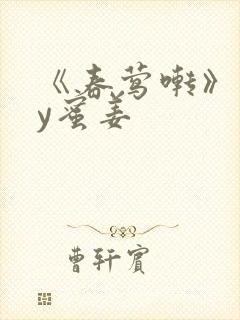 《春莺啭》
y蜜姜
曹轩宾